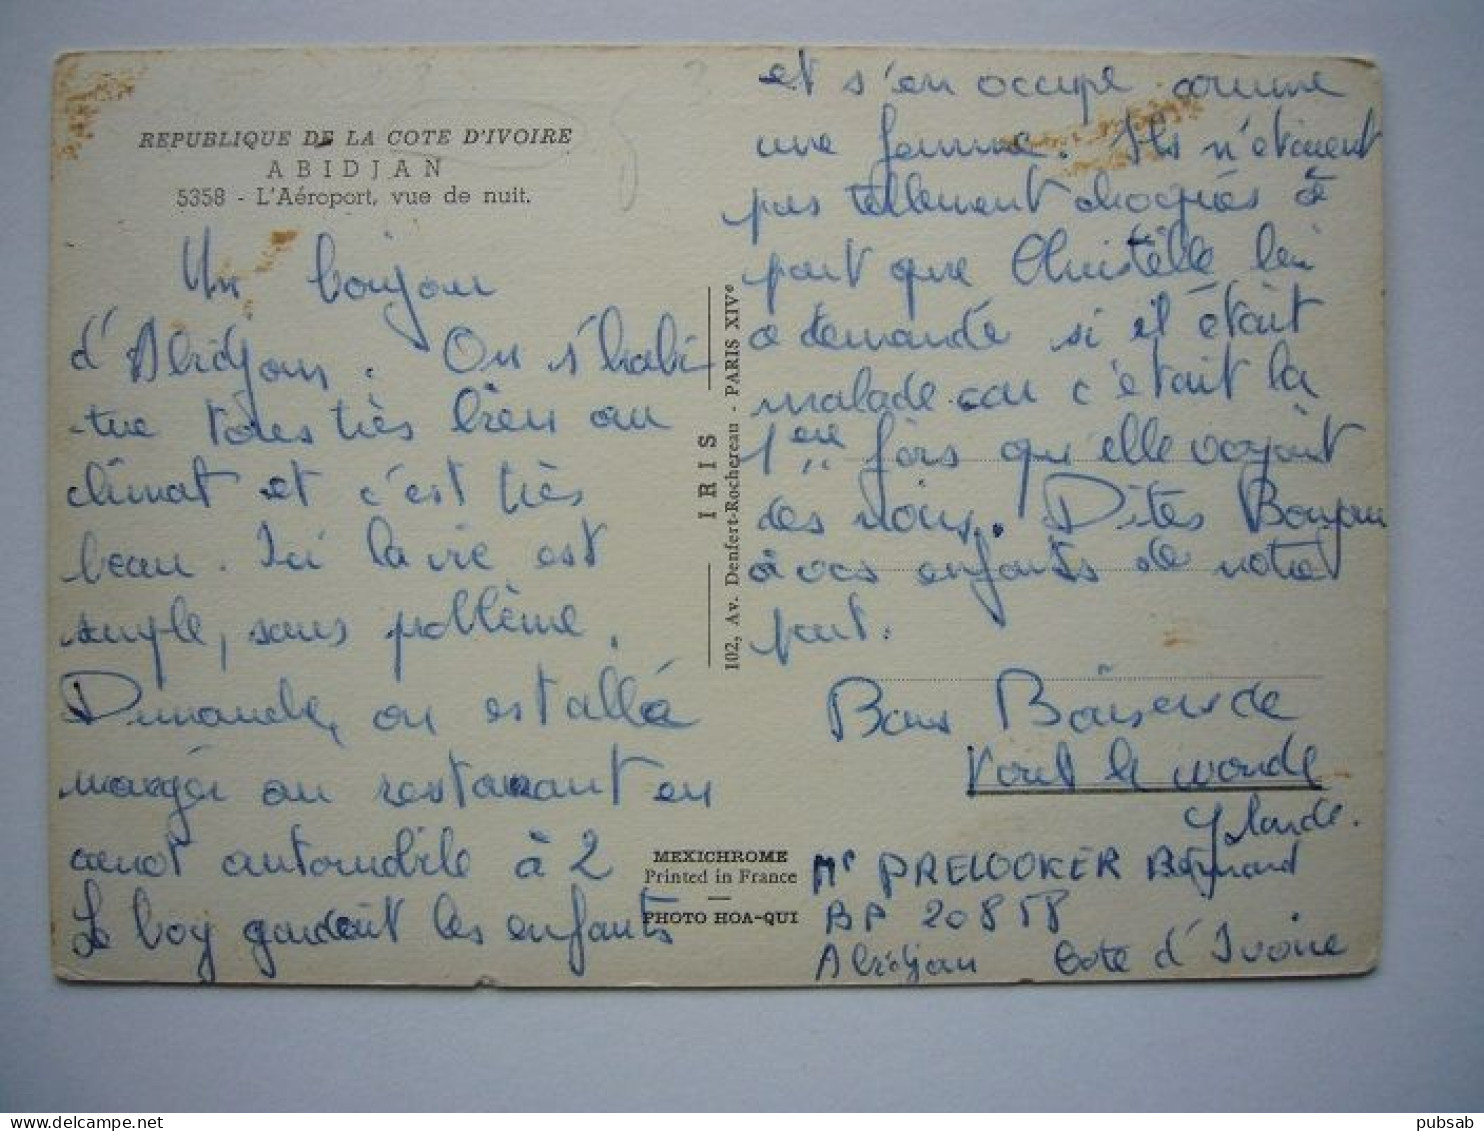 REPUBLIQUE DE LA COTE D'IVOIRE
ABIDJAN
5358 - L'Aéroport, vue de nuit.
Un bonjour
d'Abidjan. On s'habi
-tue tous très bien au
climat et c'est très
beau. Ici la vie est
simple, sans problème.
Dimanche, on est allé
manger au restaurant en
canot automobile à 2
Le boy gardait les enfants
IRIS
102, Av. Denfert-Rochereau - PARIS XIVe
MEXICHROME
Printed in France
PHOTO HOA-QUI
et s'en occupe comme
une femme. Ils n'étaient
pas tellement choqués à
part que Christèlle lui
a demandé si il était
malade car c'était la
1ere fois qu'elle voyait
des noirs. Dites Bonjour
à vos enfants de notre
part.
Bons Baisers de
tout le monde
Ylande.
Mr PRELOOKER Bernard
BP 20858
Abidjan Cote d'Ivoire
pubsab
delcampe.net